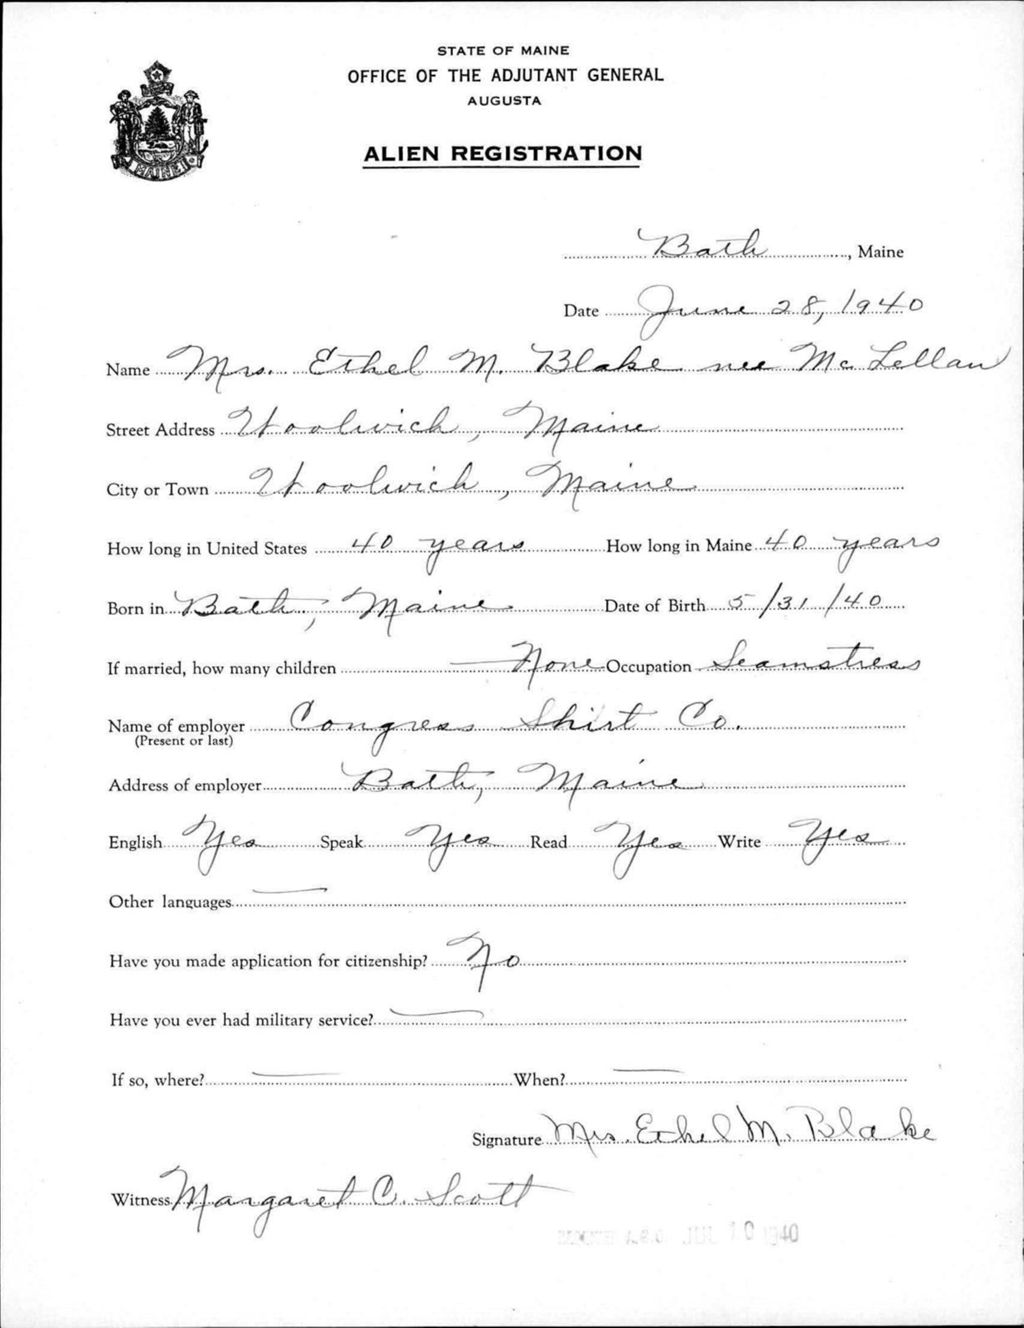 STATE OF MAINE
OFFICE OF THE ADJUTANT GENERAL
AUGUSTA
ALIEN REGISTRATION
MAINE
Bath, Maine
Date June 28, 1940
Name Mrs. Ethel M. Blake nee McLellan
Street Address Woolwich, Maine
City or Town Woolwich, Maine
How long in United States 40 years How long in Maine 40 years
Born in Bath, Maine Date of Birth 5/31/40
If married, how many children None Occupation Seamstress
Name of employer Congress Shirt Co.
(Present or last)
Address of employer Bath, Maine
English Yes Speak Yes Read Yes Write Yes
Other languages —
Have you made application for citizenship? No
Have you ever had military service? —
If so, where? — When? —
Signature Mrs. Ethel M. Blake
Witness Margaret C. Scott
A.G.O. JUL 10 1940